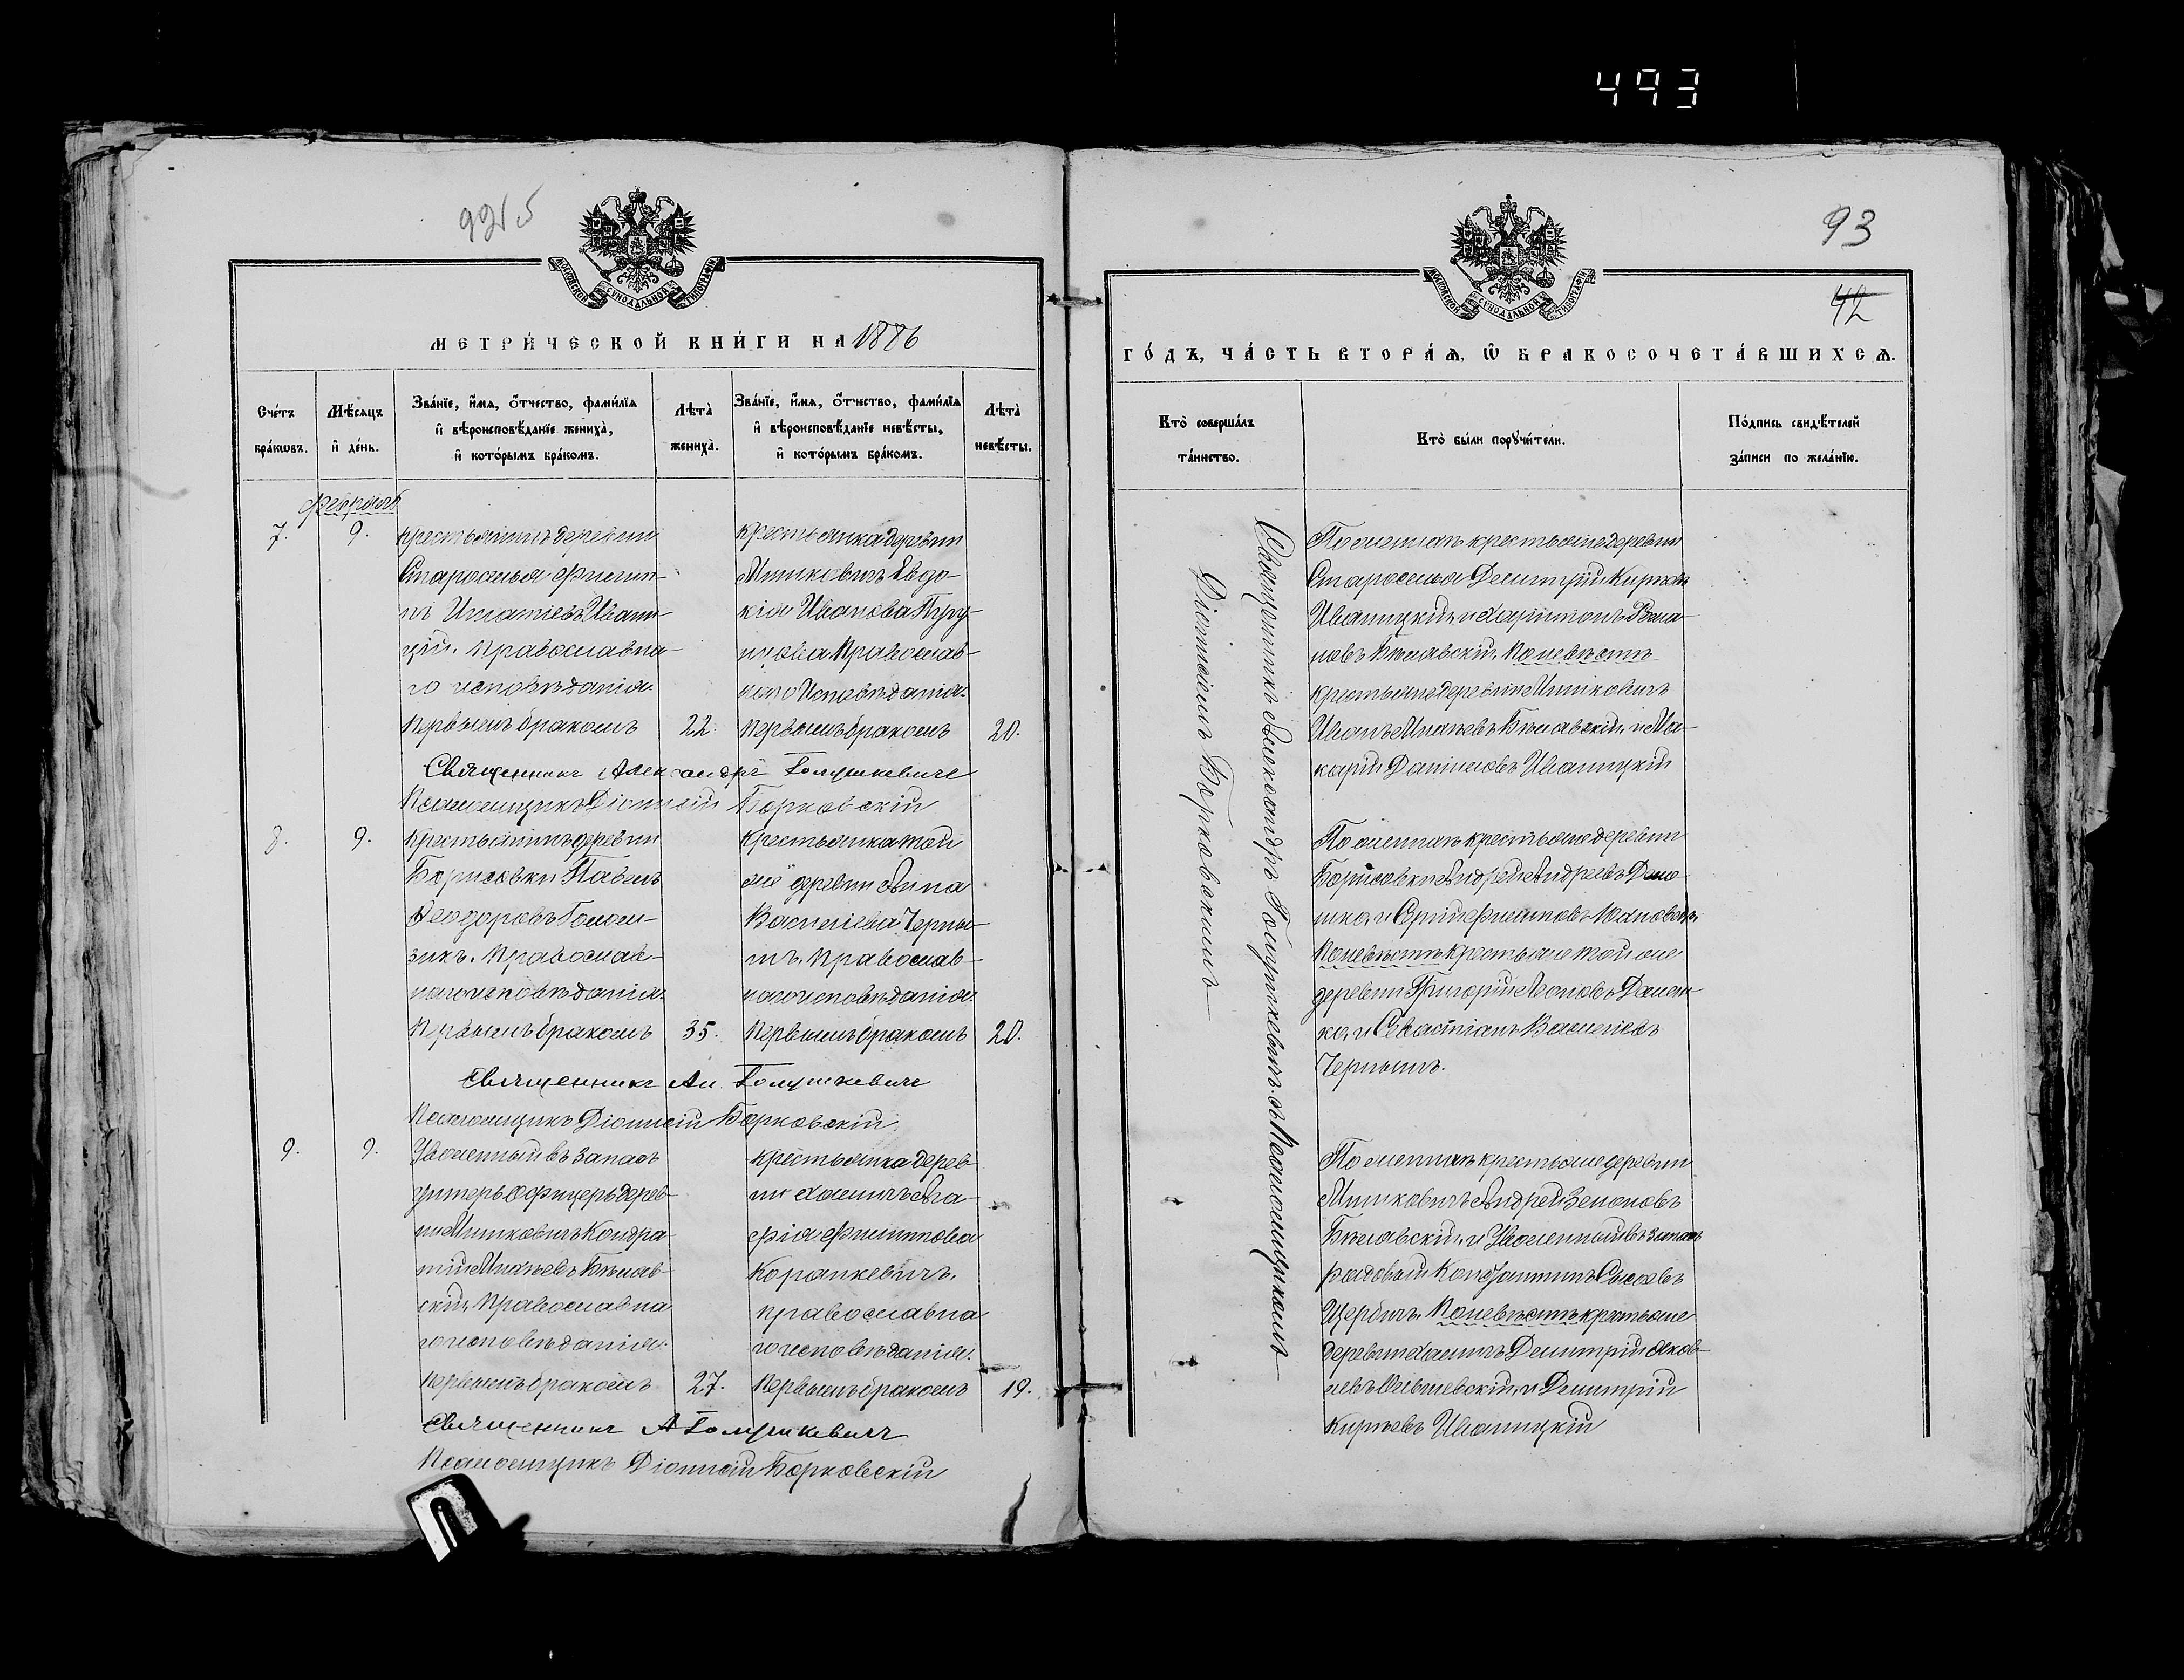 493
9215
МОСКОВСКОЙ СУНОДАЛЬНОЙ ТИПОГРАФІИ
МЕТРИ́ЧЕСКОЙ КНИ́ГИ НА 1886
Сче́тъ бра́кѡвъ.
Мѣ́сяцъ и҆ де́нь.
Зва́нїе, и҆́мѧ, ѻ҆́тчество, фами́лїѧ и҆ вѣроисповѣ́данїе жениха̀, и҆ кото́рымъ бра́комъ.
Лѣта̀ жениха̀.
Зва́нїе, и҆́мѧ, ѻ҆́тчество, фами́лїѧ и҆ вѣроисповѣ́данїе невѣ́сты, и҆ кото́рымъ бра́комъ.
Лѣта̀ невѣ́сты.
Февраль
7.
9.
Крестьянинъ деревни
Староселья Филип-
пъ Игнатіевъ Иваниц-
цкій. Православна-
го исповѣданія.
Первымъ бракомъ
22.
Крестьянка деревни
Мишковичъ Евдо-
кія Иванова
Православ-
наго Исповѣданія.
Первымъ бракомъ
20.
Священникъ Александръ Голушкевичъ
Псаломщикъ Діонисій Борковскій
8.
9.
Крестьянинъ деревни
Борисовки Павелъ
Ѳеодоровъ
Православ-
наго исповѣданія.
Первымъ бракомъ
35.
Крестьянка той
же деревни Анна
Василіева Черны-
шъ. Православ-
наго исповѣданія.
Первымъ бракомъ
20.
Священникъ Ал. Голушкевичъ
Псаломщикъ Діонисій Борковскій
9.
9.
Уволенный въ запасъ
унтеръ офицеръ дерев-
ни Мишковичъ Кондра-
тій Бѣляв-
скій, Православна
го исповѣданія.
Первымъ бракомъ
27.
Крестьянка дерев-
ни Ага-
фія Филиппова
православна
го исповѣданія.
Первымъ бракомъ
19.
Священникъ А Голушкевичъ
Псаломщикъ Діонисій Борковскій
93
42
МОСКОВСКОЙ СУНОДАЛЬНОЙ ТИПОГРАФІИ
ГО́ДЪ, ЧА́СТЬ ВТОРА́Ѧ, Ѡ҆ БРАКОСОЧЕТА́ВШИХСѦ.
Кто̀ соверша́лъ та́инство.
Кто̀ бы́ли порꙋчи́тели.
По́дпись свидѣ́телей за́писи по жела́нїю.
Священникъ Александръ Голушкевичъ съ Псаломщикомъ
Діонисіемъ Борковскимъ
По женихѣ крестьяне деревни
Староселья Димитрій
Иваницкій, и Харитонъ Рома-
новъ Бѣлявскій. По невѣстѣ
крестьяне деревни Мишковичъ
Иванъ Бѣлявскій, и Ма-
карій Даніиловъ Иваницкій
По женихѣ крестьяне деревни
Борисовки Андрей Андреевъ
По невѣстѣ крестьяне той же
деревни Григорій
и Севастіанъ Василіевъ
Чернышъ.
По женихѣ крестьяне деревни
Мишковичъ Андрей Зеноновъ
Бѣлявскій, и Уволенный въ запасъ
рядовый Константинъ Сысоевъ
По невѣстѣ крестьяне
Димитрій Яков-
левъ и Димитрій
Иваницкій